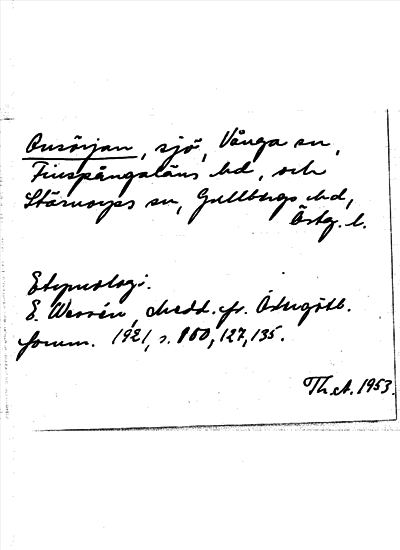 Onsörjan, sjö, Vånga sn,
Finspångaläns hd, och
Stärnorps sn, Gullbergs hd,
Östg. l.
Etymologi.
E. Wessén, Medd. fr. Östergötl.
fornm. 1921, s. 100, 127, 135.
Th. A. 1953.